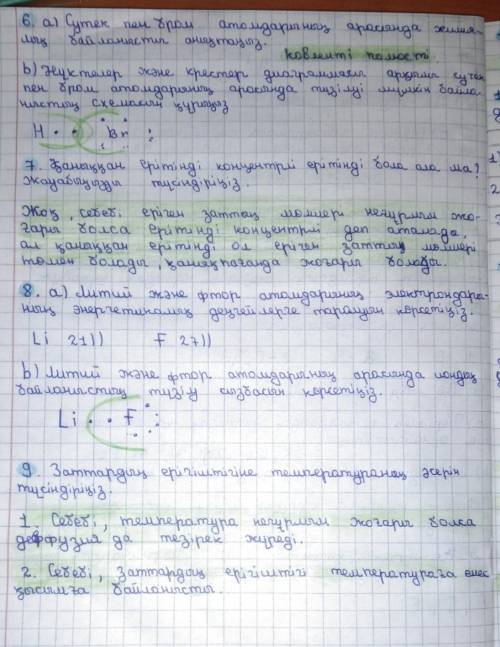 6. а) Сутек пен бром атомдарының арасында химия-
лық байланысты анықтаңыз.
ковалентті полюсті
b) Нүктелер және крестер диаграммасы арқылы сутек
пен бром атомдарының арасында түзілуі мүмкін байла-
ныстың схемасын құрыңыз
H · · Br :
7. Қанаққан ерітінді концентрлі ерітінді бола ала ма?
Жауабыңызды түсіндіріңіз.
Жоқ, себебі еріген заттың мөлшері неғұрлым жо-
ғары болса ерітінді концентрлі деп аталады,
ал қанаққан ерітінді ол еріген заттың мөлшері
төмен болады, қанықпағанда жоғары болады.
8. а) Литий және фтор атомдарының электрондары-
ның энергетикалық деңгейлерге таралуын көрсетіңіз.
Li 21)) F 27))
b) Литий және фтор атомдарының арасында иондық
байланыстың түзілу сызбасын көрсетіңіз.
Li · · F :
9. Заттардың ерігіштігіне температураның әсерін
түсіндіріңіз.
1. Себебі, температура неғұрлым жоғары болса
деффузия да тезірек жүреді.
2. Себебі, заттардың ерігіштігі температураға емес
қысымға байланысты.